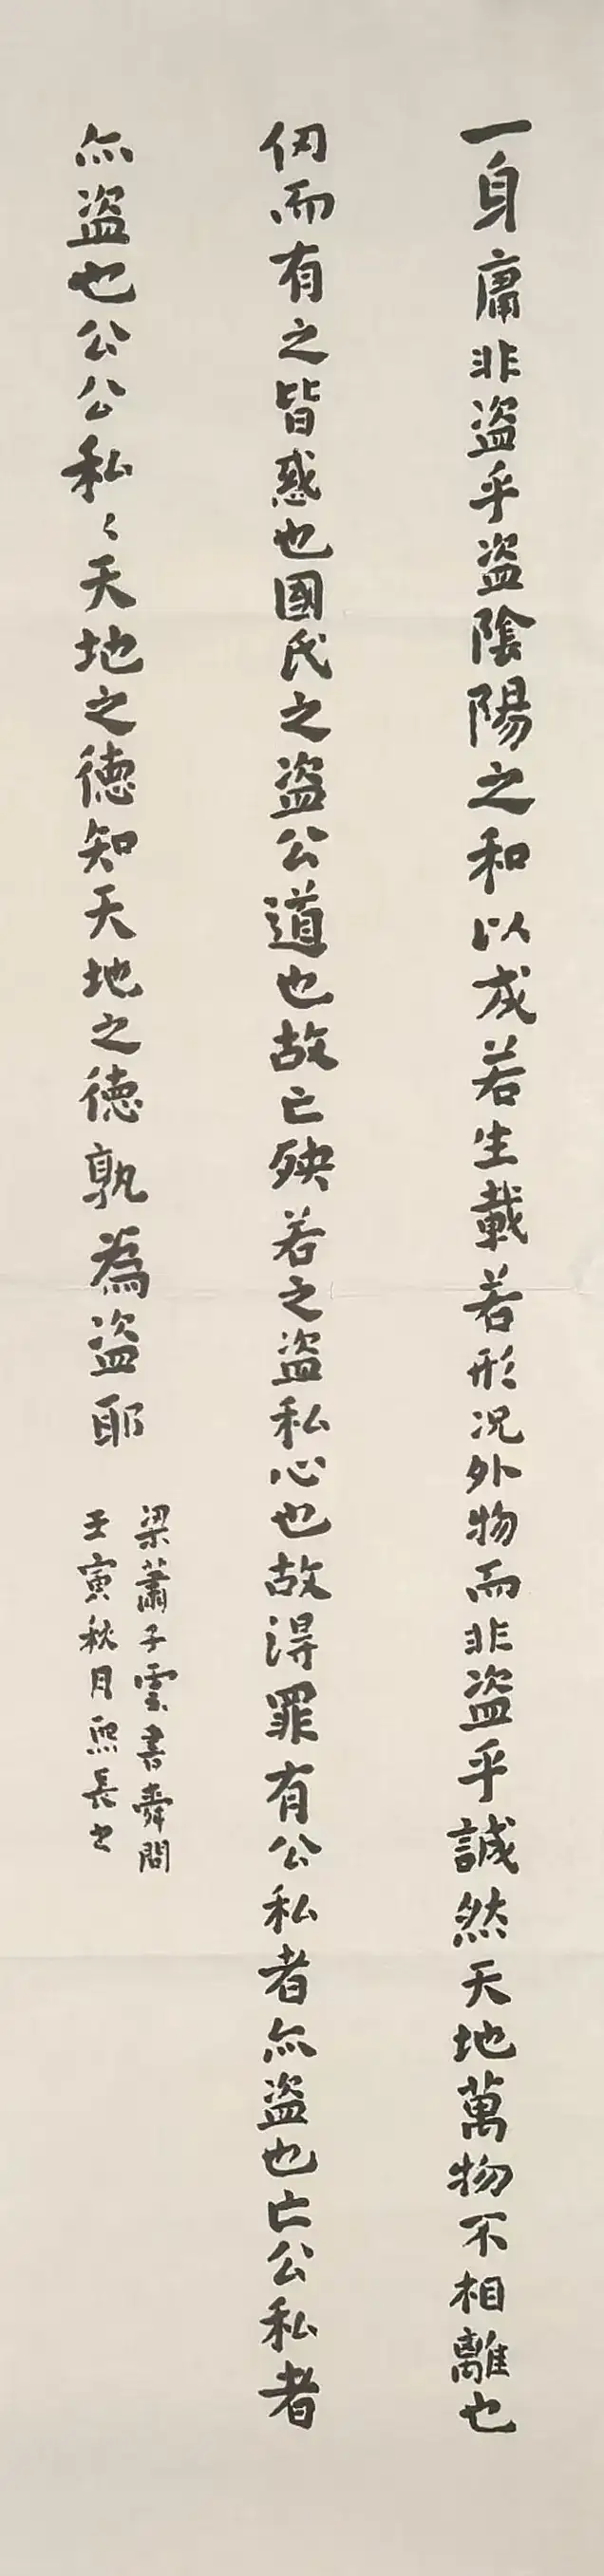 一身庸非盜乎盜陰陽之和以成若生載若形况外物而非盜乎誠然天地萬物不相離也
仞而有之皆惑也國氏之盜公道也故亡殃若之盜私心也故得罪有公私者亦盜也亡公私者
亦盜也公公私〻天地之德知天地之德孰為盜耶
梁蕭子雲書舜問
壬寅秋月熙長书